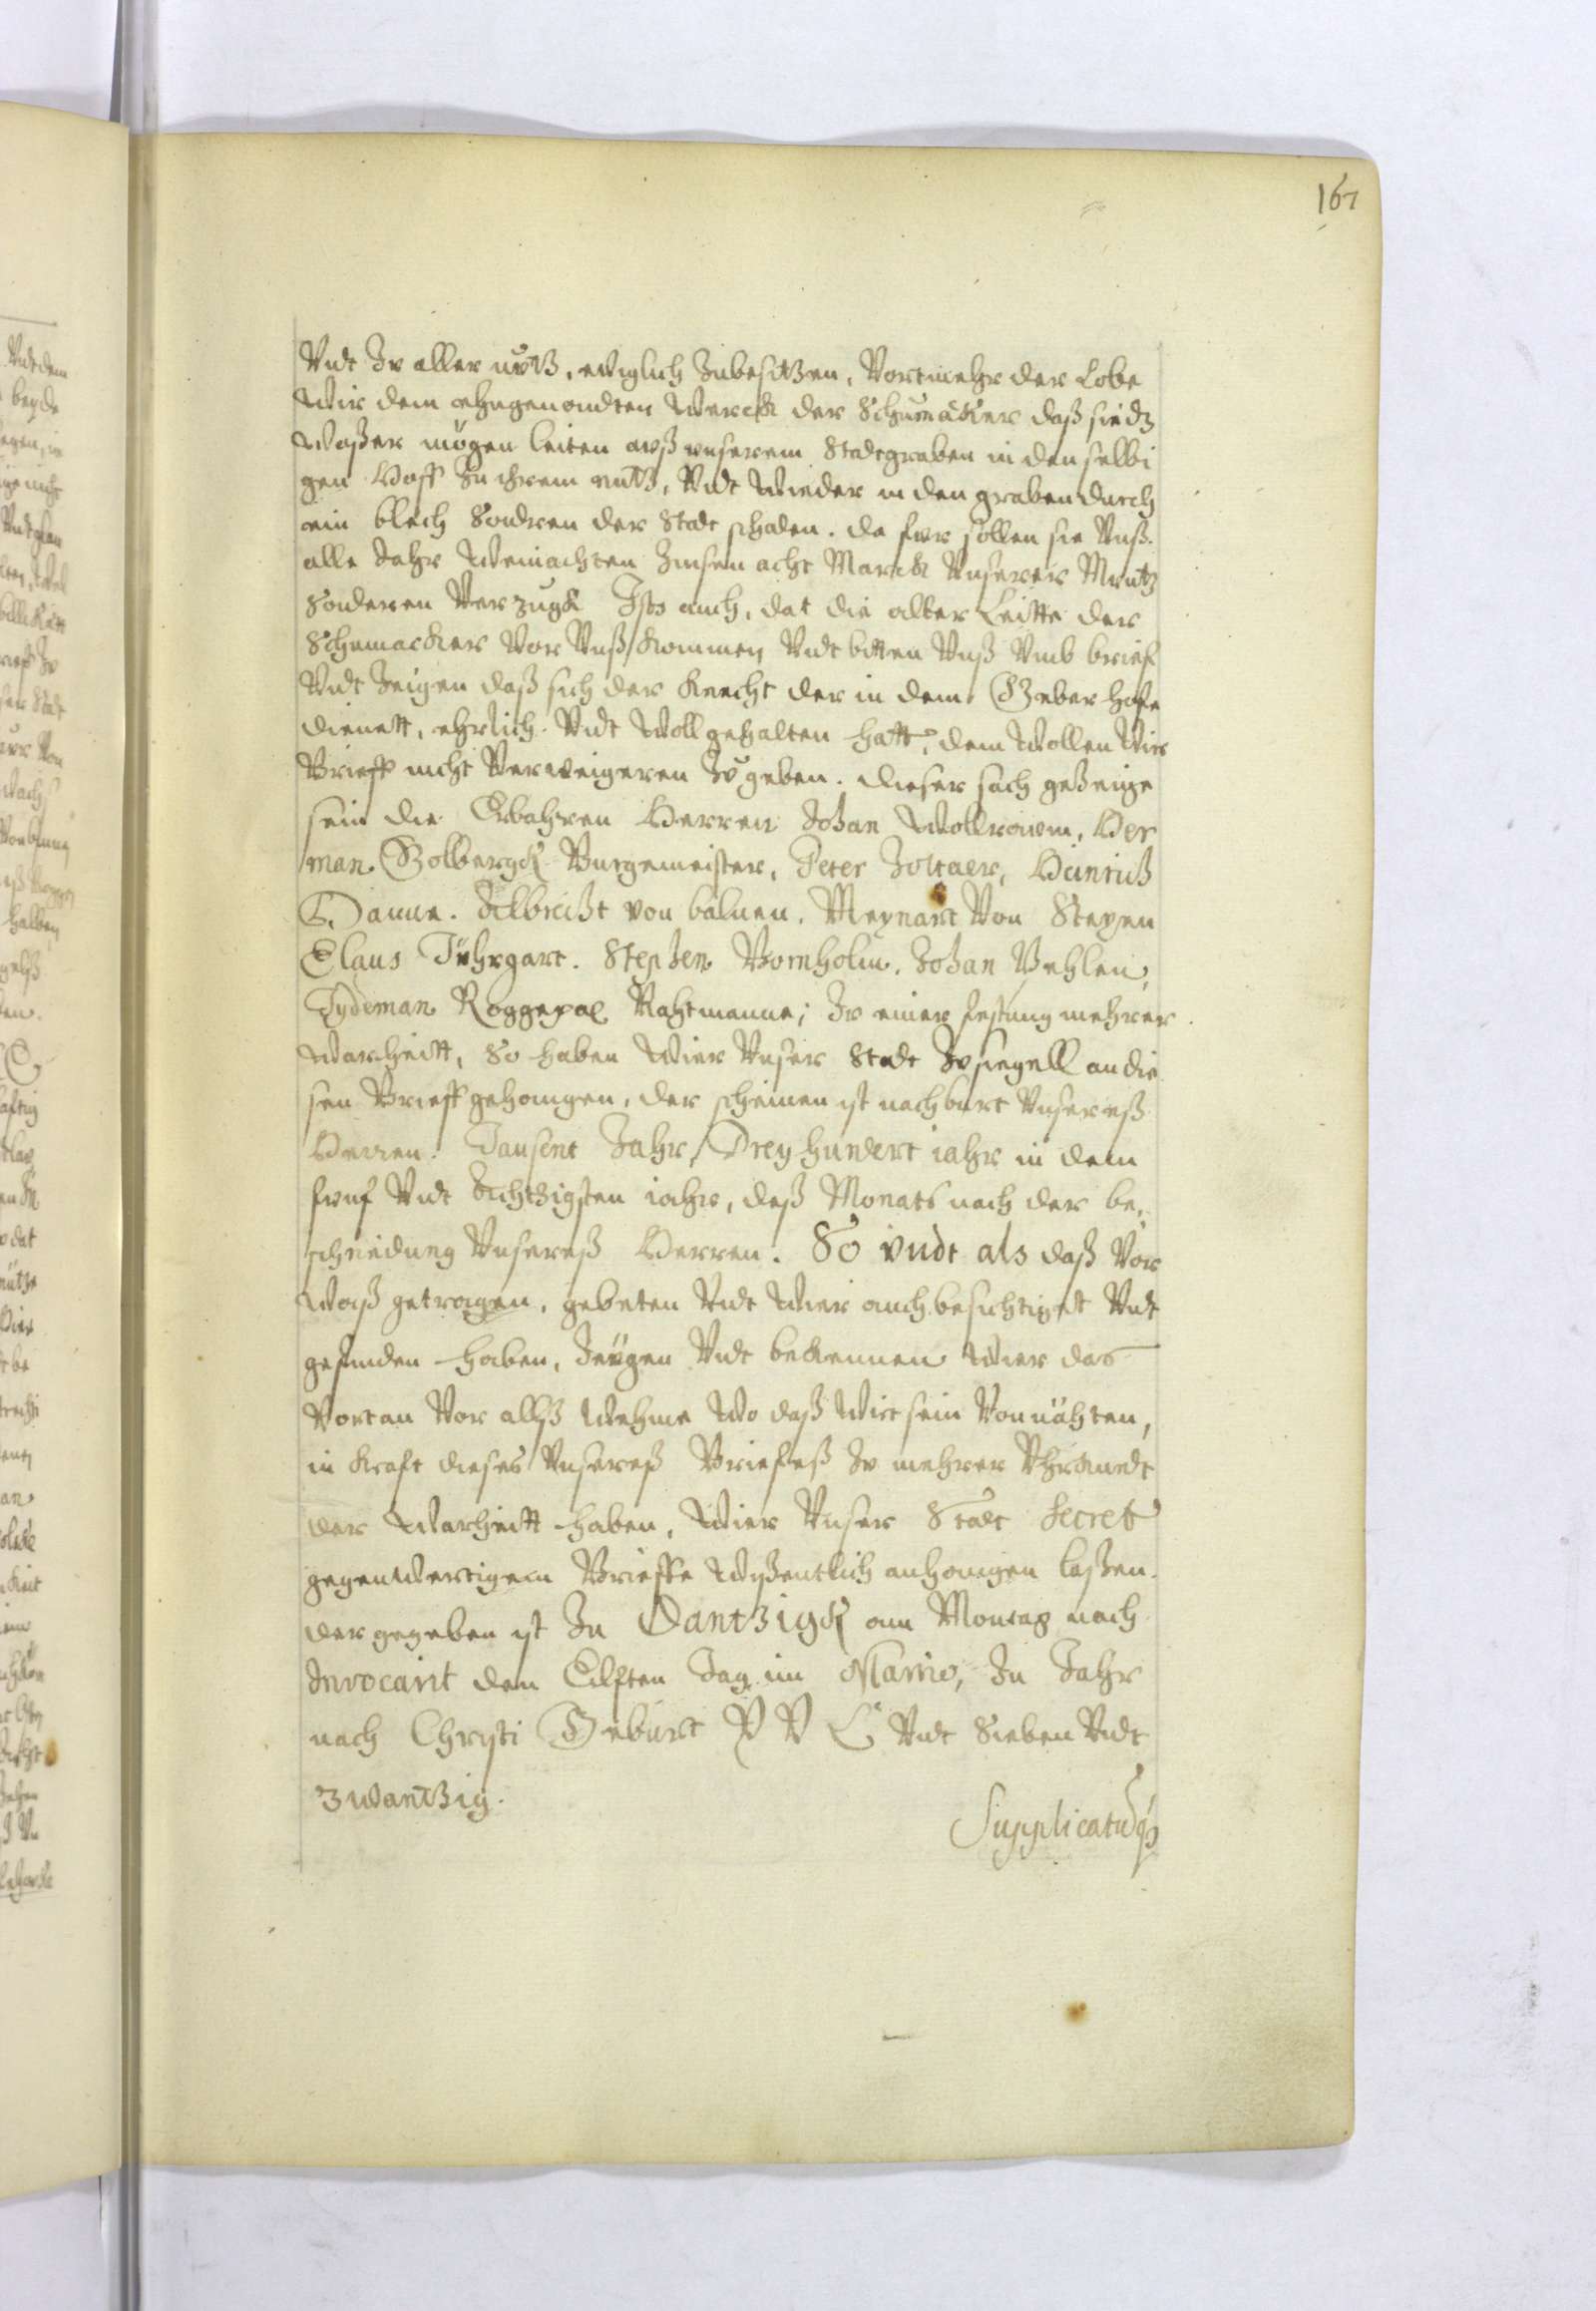 167
Vndt Zu aller nutz, ewiglich Zubesitzen, Vortmehr der Lobe
Wir dem ehegenandten Werck der Schumacker daß sie dz
Waßer mögen leiten auß vnserem Stadtgraben in den selbi
gen Hoff Zu ihrem nutz, Vndt Wieder in den graben durch
ein blech Sondren der Stadt schaden. da fuer sollen sie Vnß
alle Jahr Weinachten Zinsen acht Marck Vnserer Muntz
Sonderen Verzugk Ists auch, dat die alter Leitte der
Schumacker Vor Vnß kommen Vndt bitten Vnß Vmb brief
Vndt Zeigen daß sich der Knecht der in dem Gerber hofe
dienett, ehrlich Vndt Woll gehalten hatt, dem Wollen Wir
Brieff nicht Verweigeren Zu geben. dieser sach geZeuge
sein die Erbahren Herren Johan Wollrowem, Her
man Golbergk Burgemeister, Peter Joltaer, Heinrich
Danne. Albrecht von balnen. Meynart Von Steyen
Claus Tuhrgart. Stephen Bornholm. Johan Vehlen,
Tydeman Roggepae Rahtmanne; Zu einer festung mehrer
Warheitt, So haben Wier Vnser Stadt Jnsiegell an die
sen Brieff gehangen, der scheinen ist nach burt Vnsereß
Herren. Tausent Jahr, Dreyhundert iahr in dem
funf Vndt Achtzigsten iahr, deß Monats nach der be,
schneidung Vnsereß Herren. So vndt als daß Vor
Waß getragen, gebeten Vndt Wier auch besichtiget Vndt
gefunden haben, Zeugen Vndt bekennen Wier das
Vortan Vor allß Wehme Wo daß Wirt sein Von nöhten,
in Kraft dieses Vnsereß Briefeß Zu mehrer Vhrkundt
der Warheitt haben, Wier Vnser Stadt Secrett
gegenwertigem Brieffe Wißentlich anhangen laßen.
der gegeben ist Zu Dantzigk am Montag nach
Invocavit den Eilften Tag im Martio, Im Jahr
nach Christi Geburt V Vndt Sieben Vndt
Zwantzig.
Supplicatur